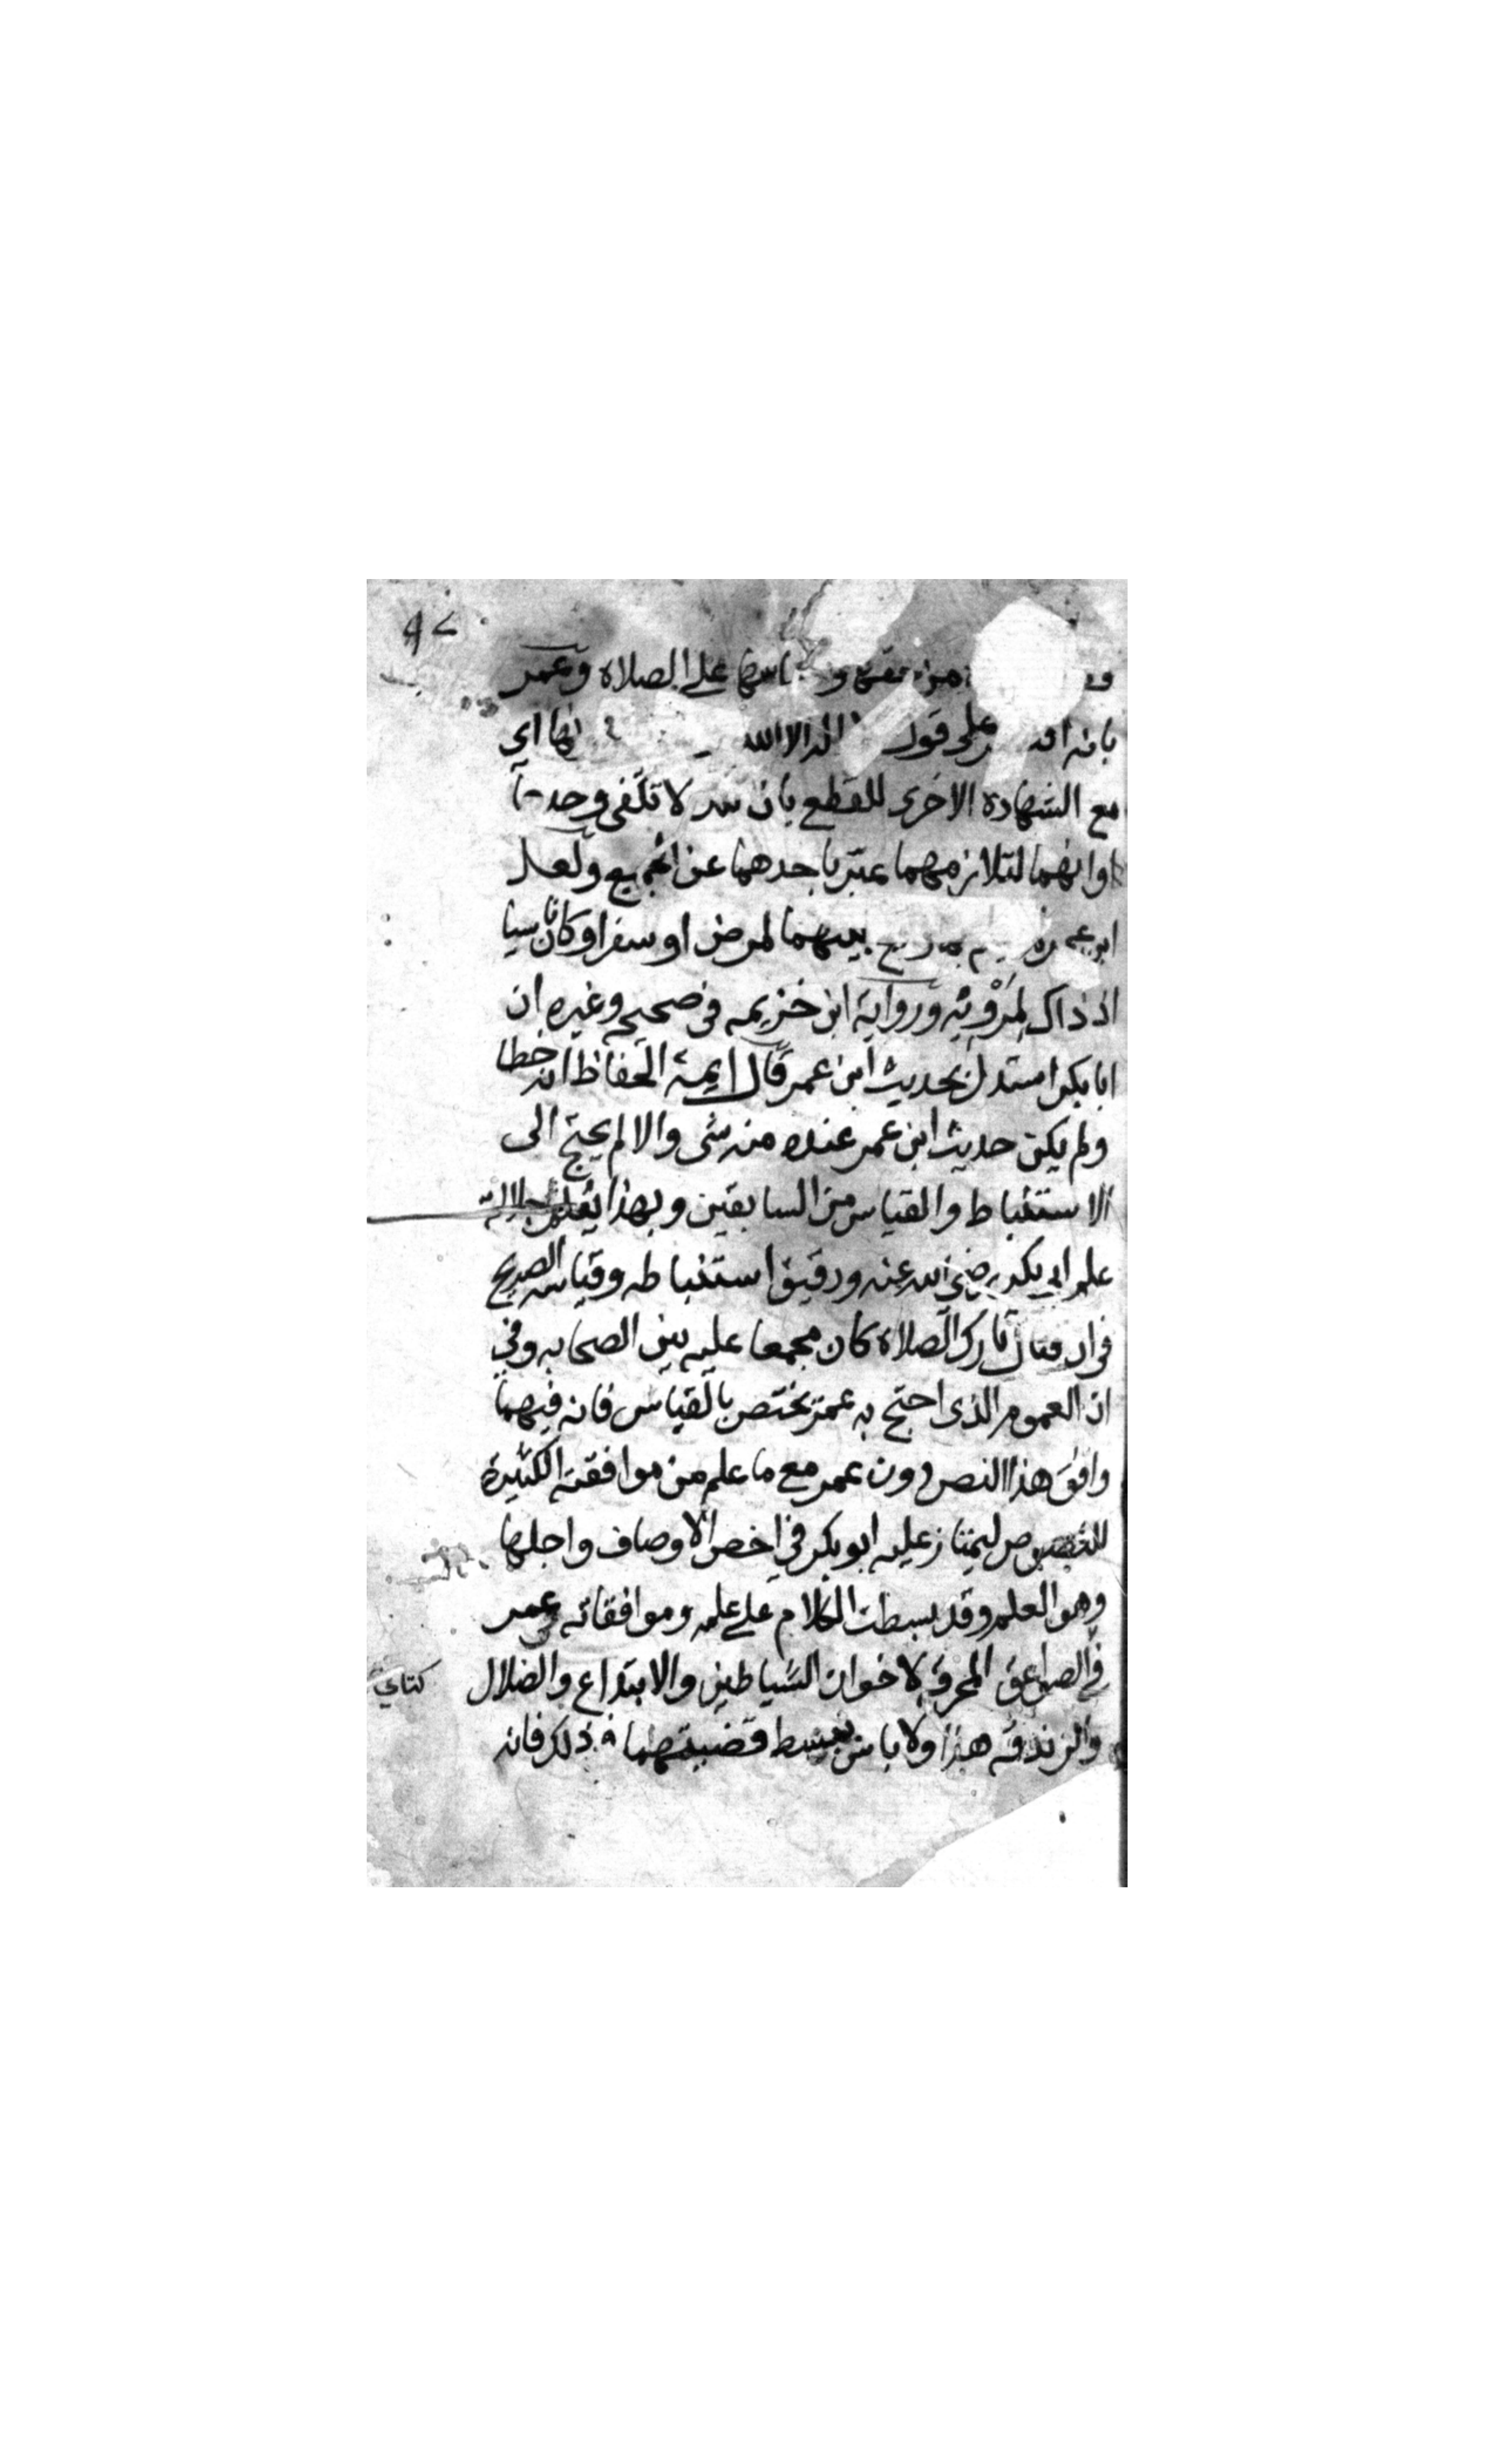 من حقها و على الصلاة وعمر
بانه على قول اله الا الله اي
مع الشهادة الاخرى للقطع بان لا تكفى وحدها
او انهما لتلازمهما عبر باحدهما عن الجميع ولعل
ابن عمر بينهما لمرض او سفر او كان ناسيا
اذ ذاك لمرويه ورواية ابن خزيمه في صحيحه وغيره ان
ابا بكر استدل بحديث ابن عمر قال ايمة الحفاظ انه خطا
ولم يكن حديث ابن عمر عنده منه شى والا لم يحتج الى
الاستنباط والقياس من السابقين وبهذا يعلم جلالة
علم ابي بكر رضي الله عنه ودقيق استنباطه وقياسه الصريح
في ان قتال تارك الصلاة كان مجمعا عليه بين الصحابه وفي
ان العموم الذى احتج به عمر يختص بالقياس فانه فيهما
وافق هذا النص دون عمر مع ما علم من موافقته الكثيرة
للنصوص ليمتاز عليه ابو بكر في اخص الاوصاف واجلها
وهو العلم وقد بسطت الكلام على علمه وموافقاته عمر
في الصواعق المحرقة لاخوان الشياطين والابتداع والضلال
كتابي
والزندقة هذا ولا باس ببسط قضيتهما في ذلك فانه